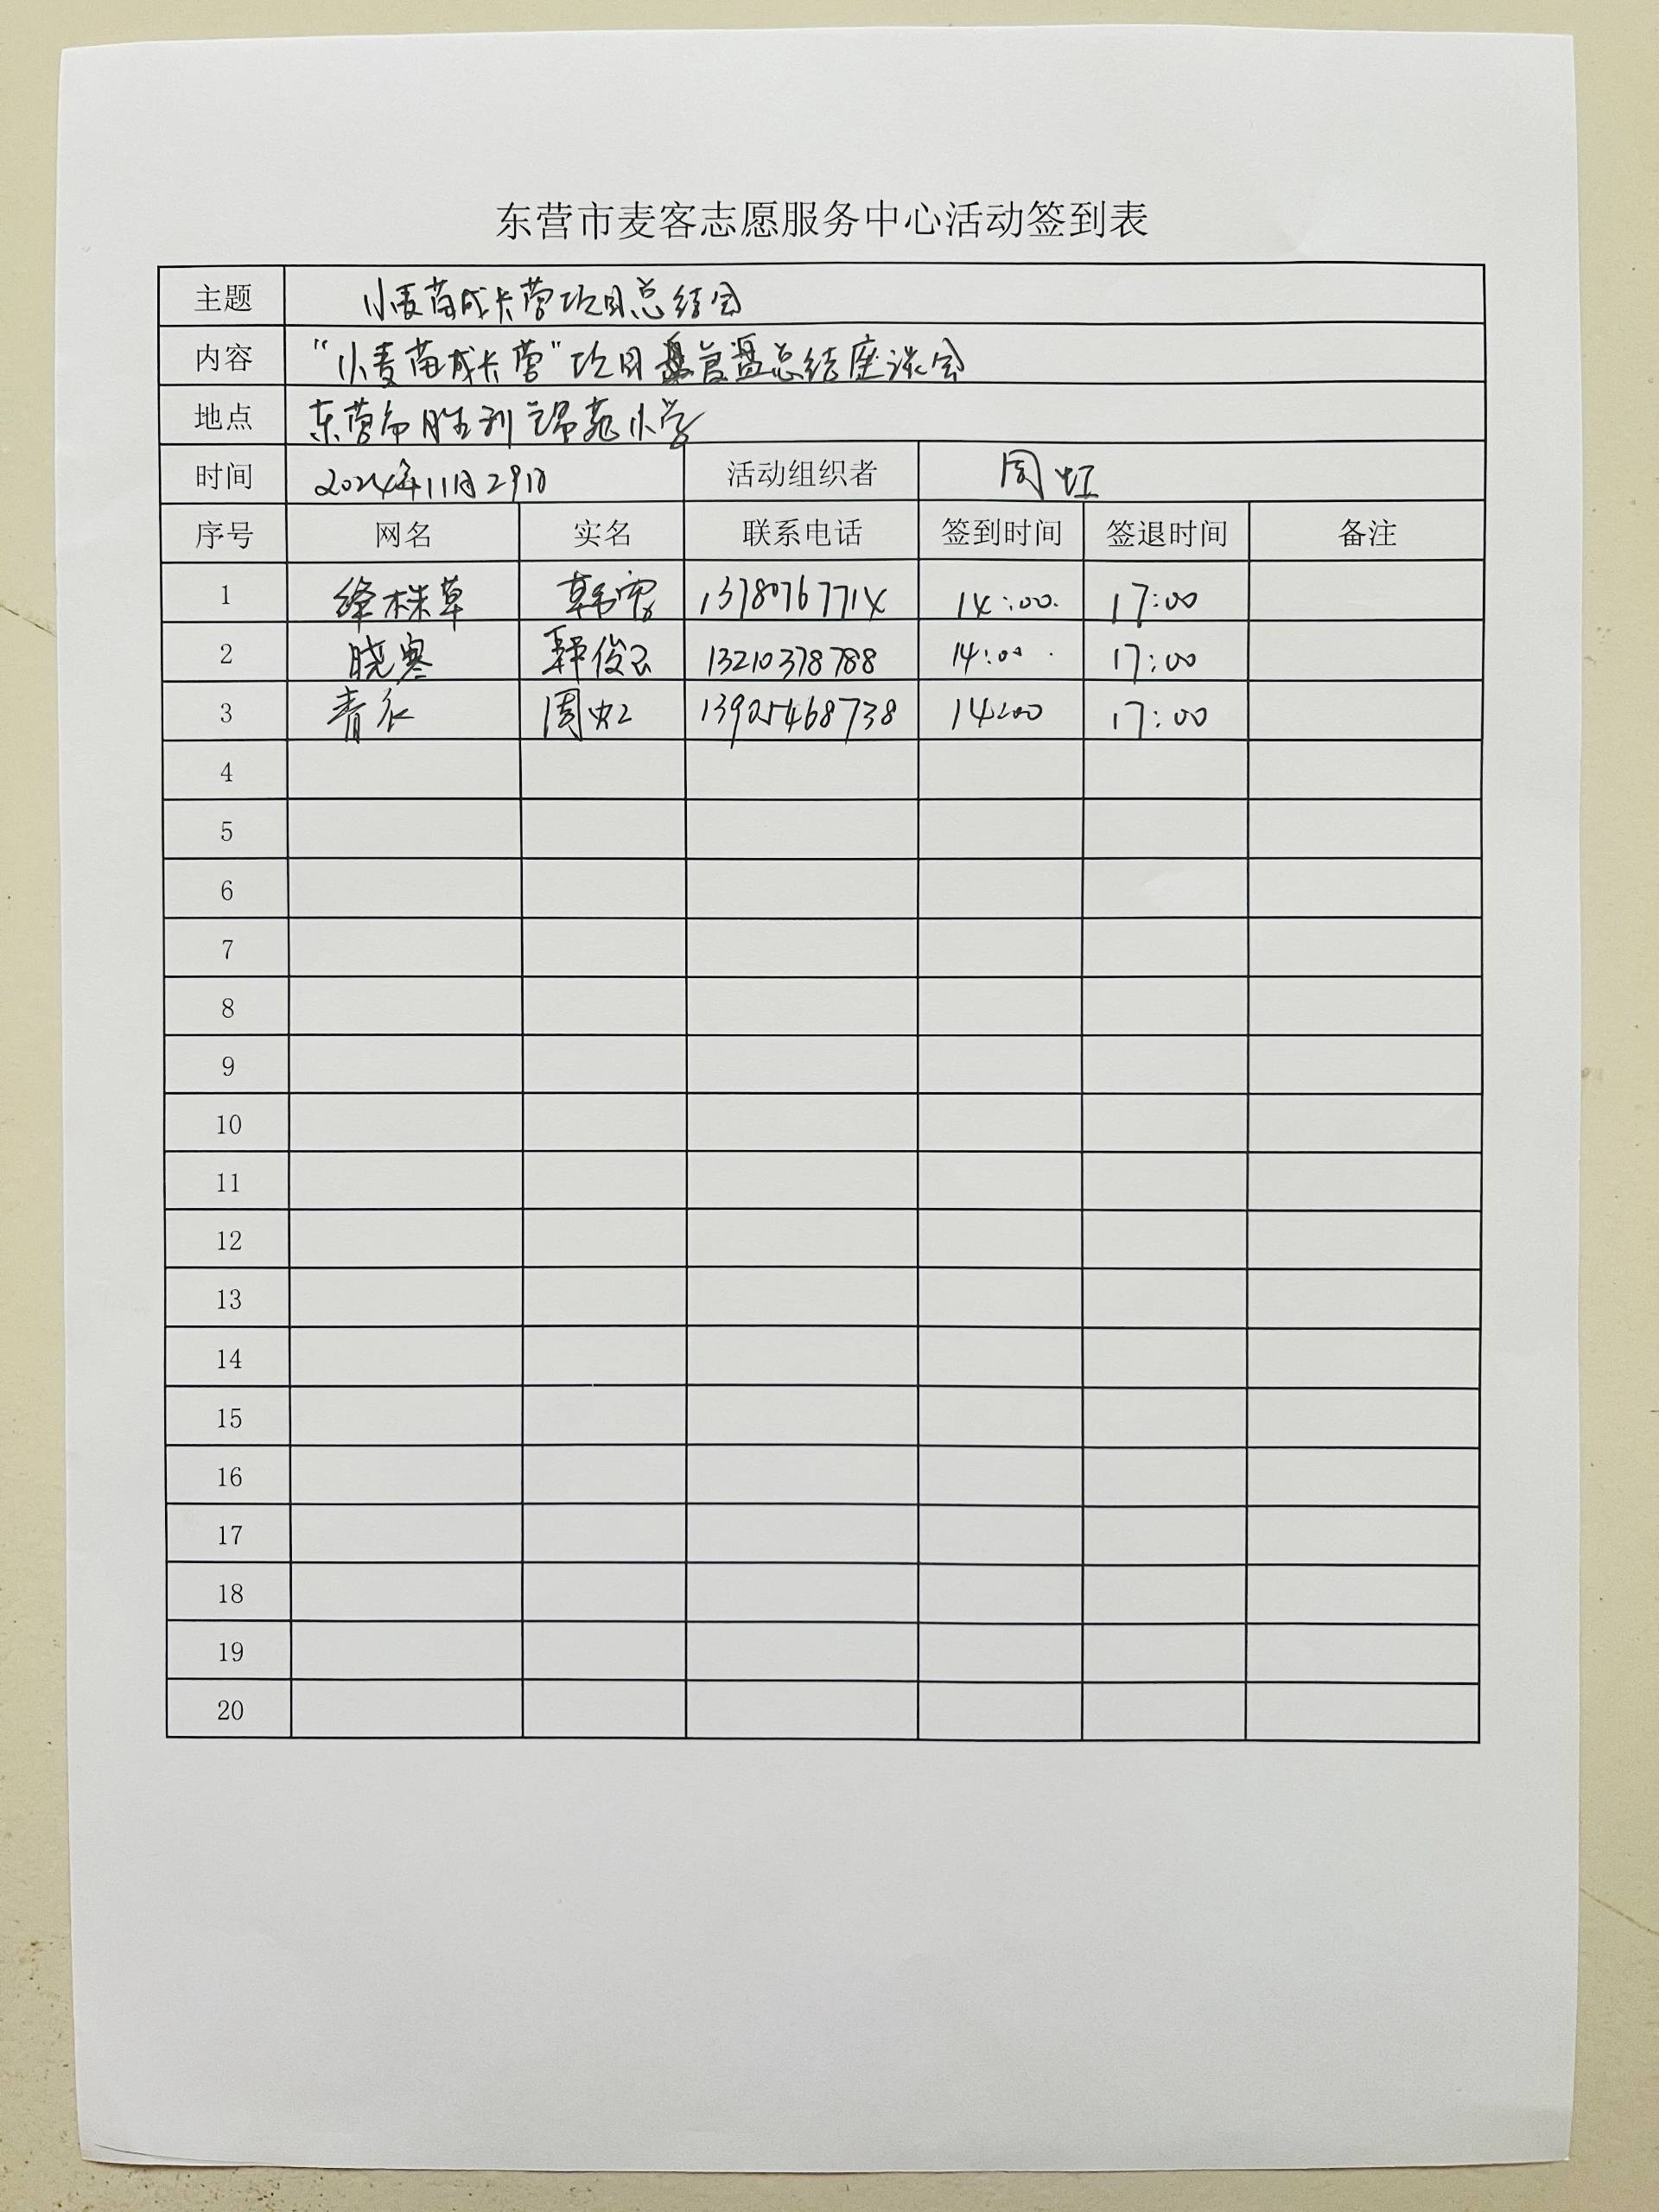 东营市麦客志愿服务中心活动签到表
主题 小麦苗成长营项目总结会
内容 “小麦苗成长营”项目复盘总结座谈会
地点 东营市胜利锦苑小学
时间 2024年11月29日 活动组织者 周虹
序号 网名 实名 联系电话 签到时间 签退时间 备注
1 绛株草 韩雪 13780767714 14:00 17:00
2 晓寒 郭俊云 13210378788 14:00 17:00
3 青衣 周虹 13905468738 14:00 17:00
4
5
6
7
8
9
10
11
12
13
14
15
16
17
18
19
20